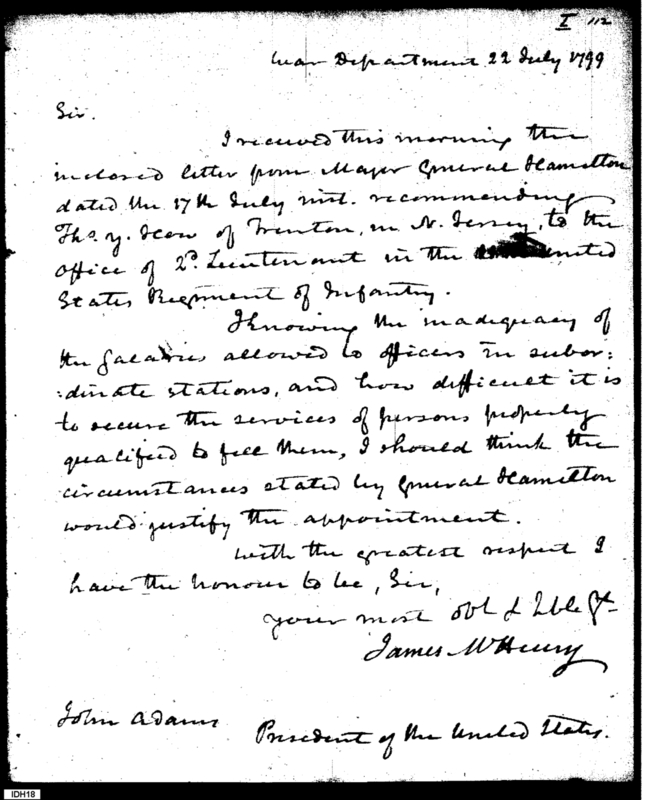 I 112
War Department 22 July 1799
Sir.
I received this morning the
inclosed letter from Major General Hamilton
dated the 17th July inst. recommending
Thos. Y. How of Trenton, in N. Jersey, to the
Office of 2d. Lieutenant in the United
States Regiment of Infantry.
Knowing the inadequacy of
the salaries allowed to officers in subor:
:dinate stations, and how difficult it is
to secure the services of persons properly
qualified to fill them, I should think the
circumstances stated by General Hamilton
would justify the appointment.
With the greatest respect I
have the honour to be, Sir,
your most obt & hble St
James McHenry
John Adams
President of the United States.
IDH18